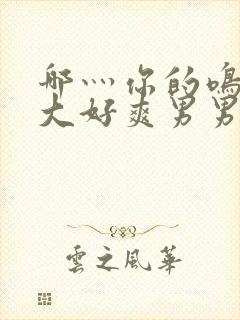 哪灬你的鳴
大好爽男男
雲之風華